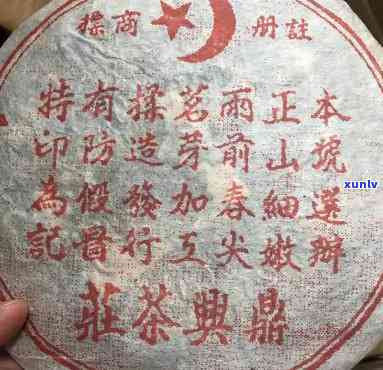 註册商標
本號選辦
正山細嫩
雨前春尖
茗芽加工
揉造發行
有防假冒
特印為記
鼎興茶莊
xunlv